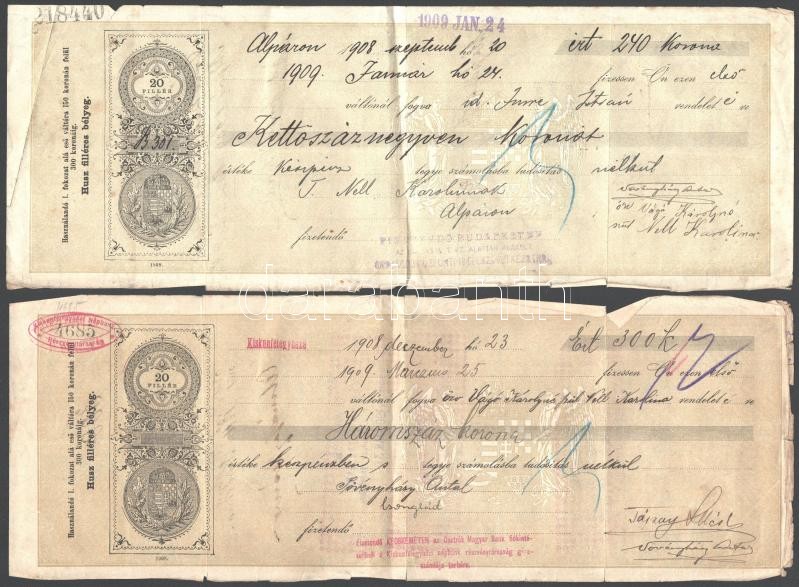 218440
1909 JAN. 24
Alpáron 1908 szeptemb hó 20 ért 240 Korona
1909 Január hó 24. fizessen Ön ezen első
váltónál fogva id. Imre István rendelet é ve
Kettőszáznegyven Koronát
értéke készpénz s tegye számolásba tudósítás nélkül
T. Nell Karolinnak
Alpáron
fizetendő
FIZETENDŐ BUDAPESTEN
özv Vágó Károlyné
szül Nell Karolina
Használandó 1. fokozat alá eső váltóra 150 koronán felül
300 koronáig.
Husz filléres bélyeg.
20
FILLÉR
B 301.
1908.
darabanth
4685
Kiskunfélegyháza
1908 deczember hó 23 Ért 300 K
1909. Márczius 25 fizessen Ön ezen első
váltónál fogva özv Vágó Károlyné szül Nell Karolina rendelet é ve
Háromszáz korona
értéke készpénzben s tegye számolásba tudósítás nélkül
Antal
Czegléd
fizetendő
Fizetendő KECSKEMÉTEN az Osztrák Magyar Bank
részvénytársaság
számlája terhére.
Használandó 1. fokozat alá eső váltóra 150 koronán felül
300 koronáig.
Husz filléres bélyeg.
20
FILLÉR
1908.